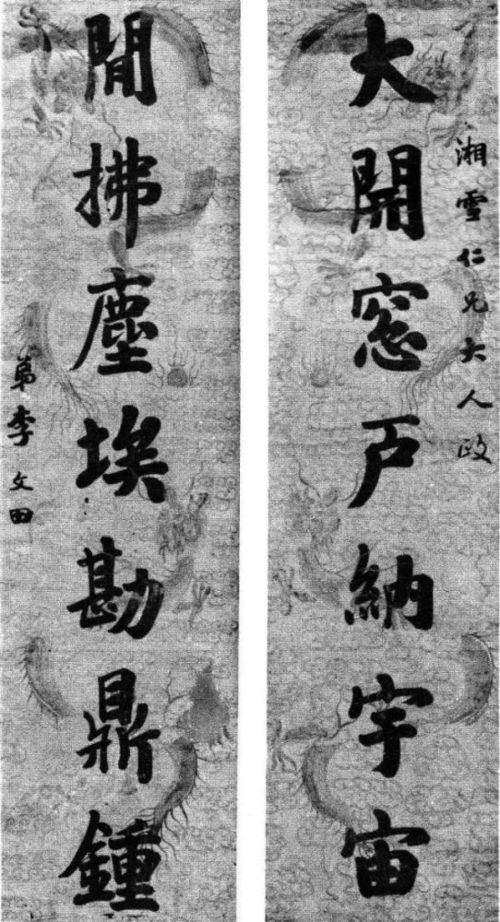 湘雪仁兄大人政
大開窓戶納宇宙
間拂塵埃勘鼎鍾
弟李文田